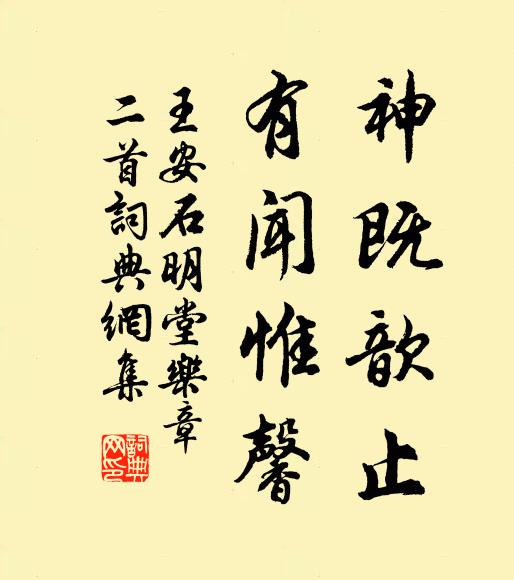 神既歆止
有闻惟馨
王安石明堂樂章
二首詞典網集
詞典网印